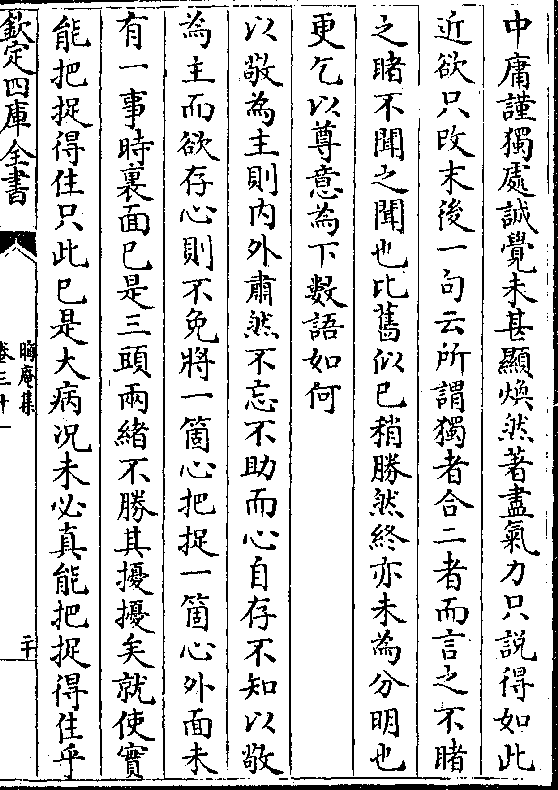 中庸謹獨處誠覺未甚顯煥然著盡氣力只說得如此
近欲只改末後一句云所謂獨者合二者而言之不睹
之睹不聞之聞也比舊似已稍勝然終亦未為分明也
更乞以尊意為下數語如何
以敬為主則内外肅然不忘不助而心自存不知以敬
為主而欲存心則不免將一箇心把捉一箇心外面未
有一事時裏面已是三頭兩緒不勝其擾擾矣就使實
能把捉得住只此已是大病況未必真能把捉得住乎
欽定四庫全書
晦庵集
卷三十一
二十